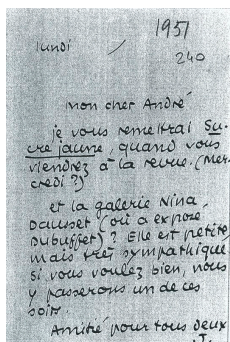 lundi / 1951
240
mon cher André
je vous remettrai Su-
cre jaune, quand vous
viendrez à la revue. (Mer-
credi ?)
et la galerie Nina
Dausset (où a exposé
Dubuffet) ? Elle est petite
mais très sympathique
si vous voulez bien, nous
y passerons un de ces
soirs.
Amitié pour tous deux
J.